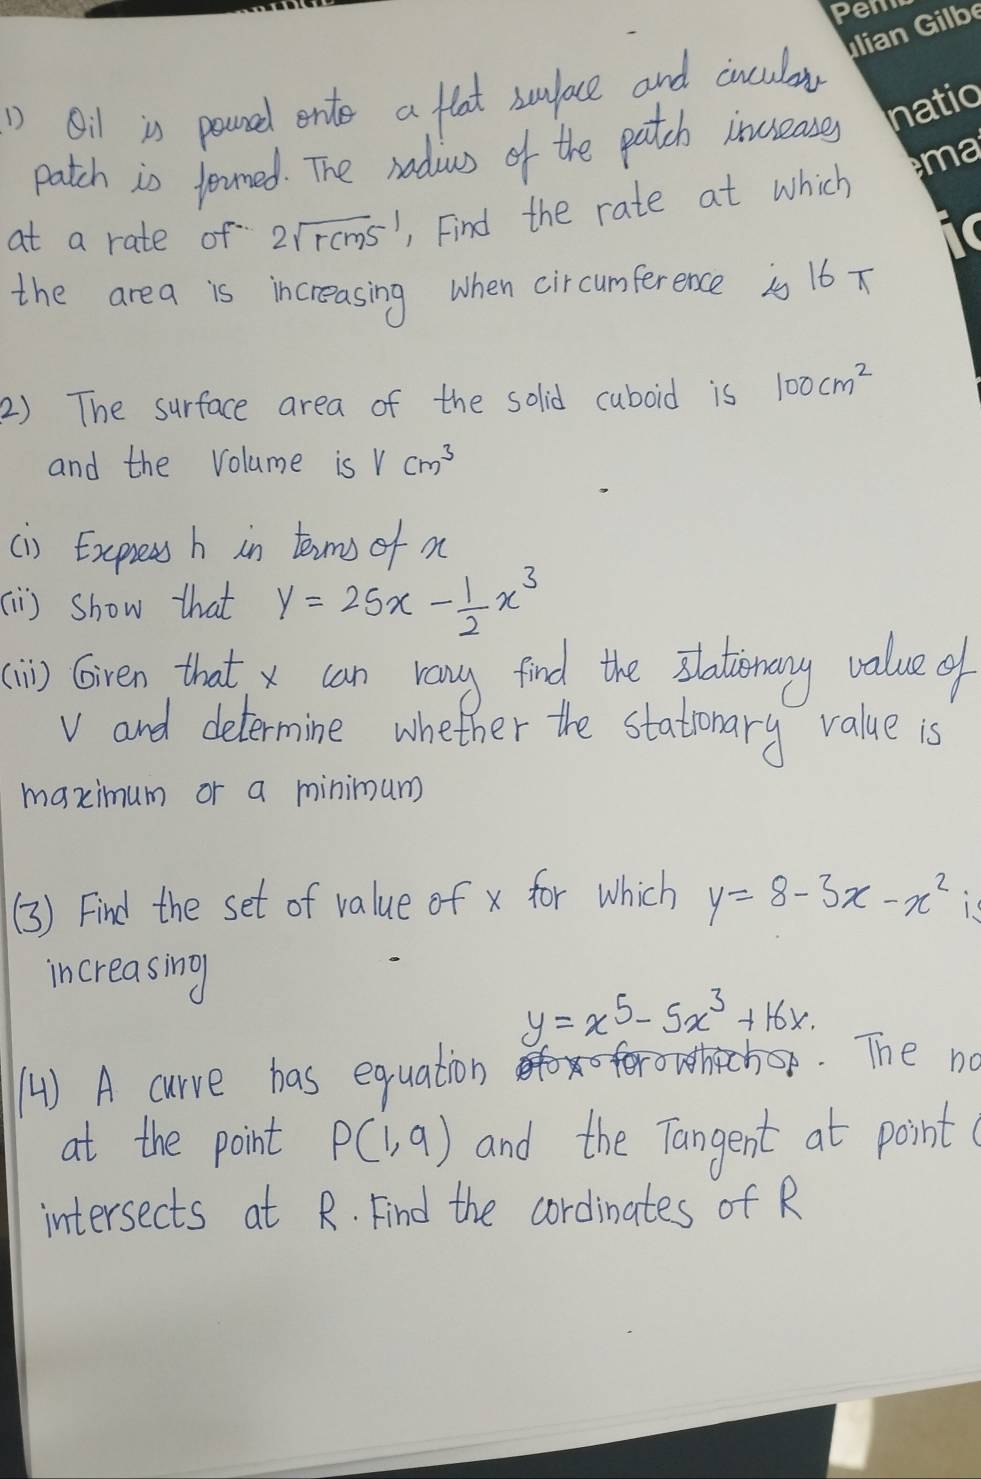 Pem
ulian Gilbe
natio
ema
ic
1) Oil is poured onto a flat surface and circular
patch is formed. The radius of the patch increases
at a rate of 2√rcms⁻¹, Find the rate at which
the area is increasing when circumference is 16 π
2) The surface area of the solid cuboid is 100cm²
and the volume is V cm³
(i) Express h in terms of x
(ii) Show that V = 25x - 1/2 x³
(iii) Given that x can vary find the stationary value of
V and determine whether the stationary value is
maximum or a minimum
(3) Find the set of value of x for which y = 8 - 3x - x² is
increasing
y = x⁵ - 5x³ + 16x.
(4) A curve has equation . The no
at the point P(1,9) and the Tangent at point
intersects at R. Find the cordinates of R